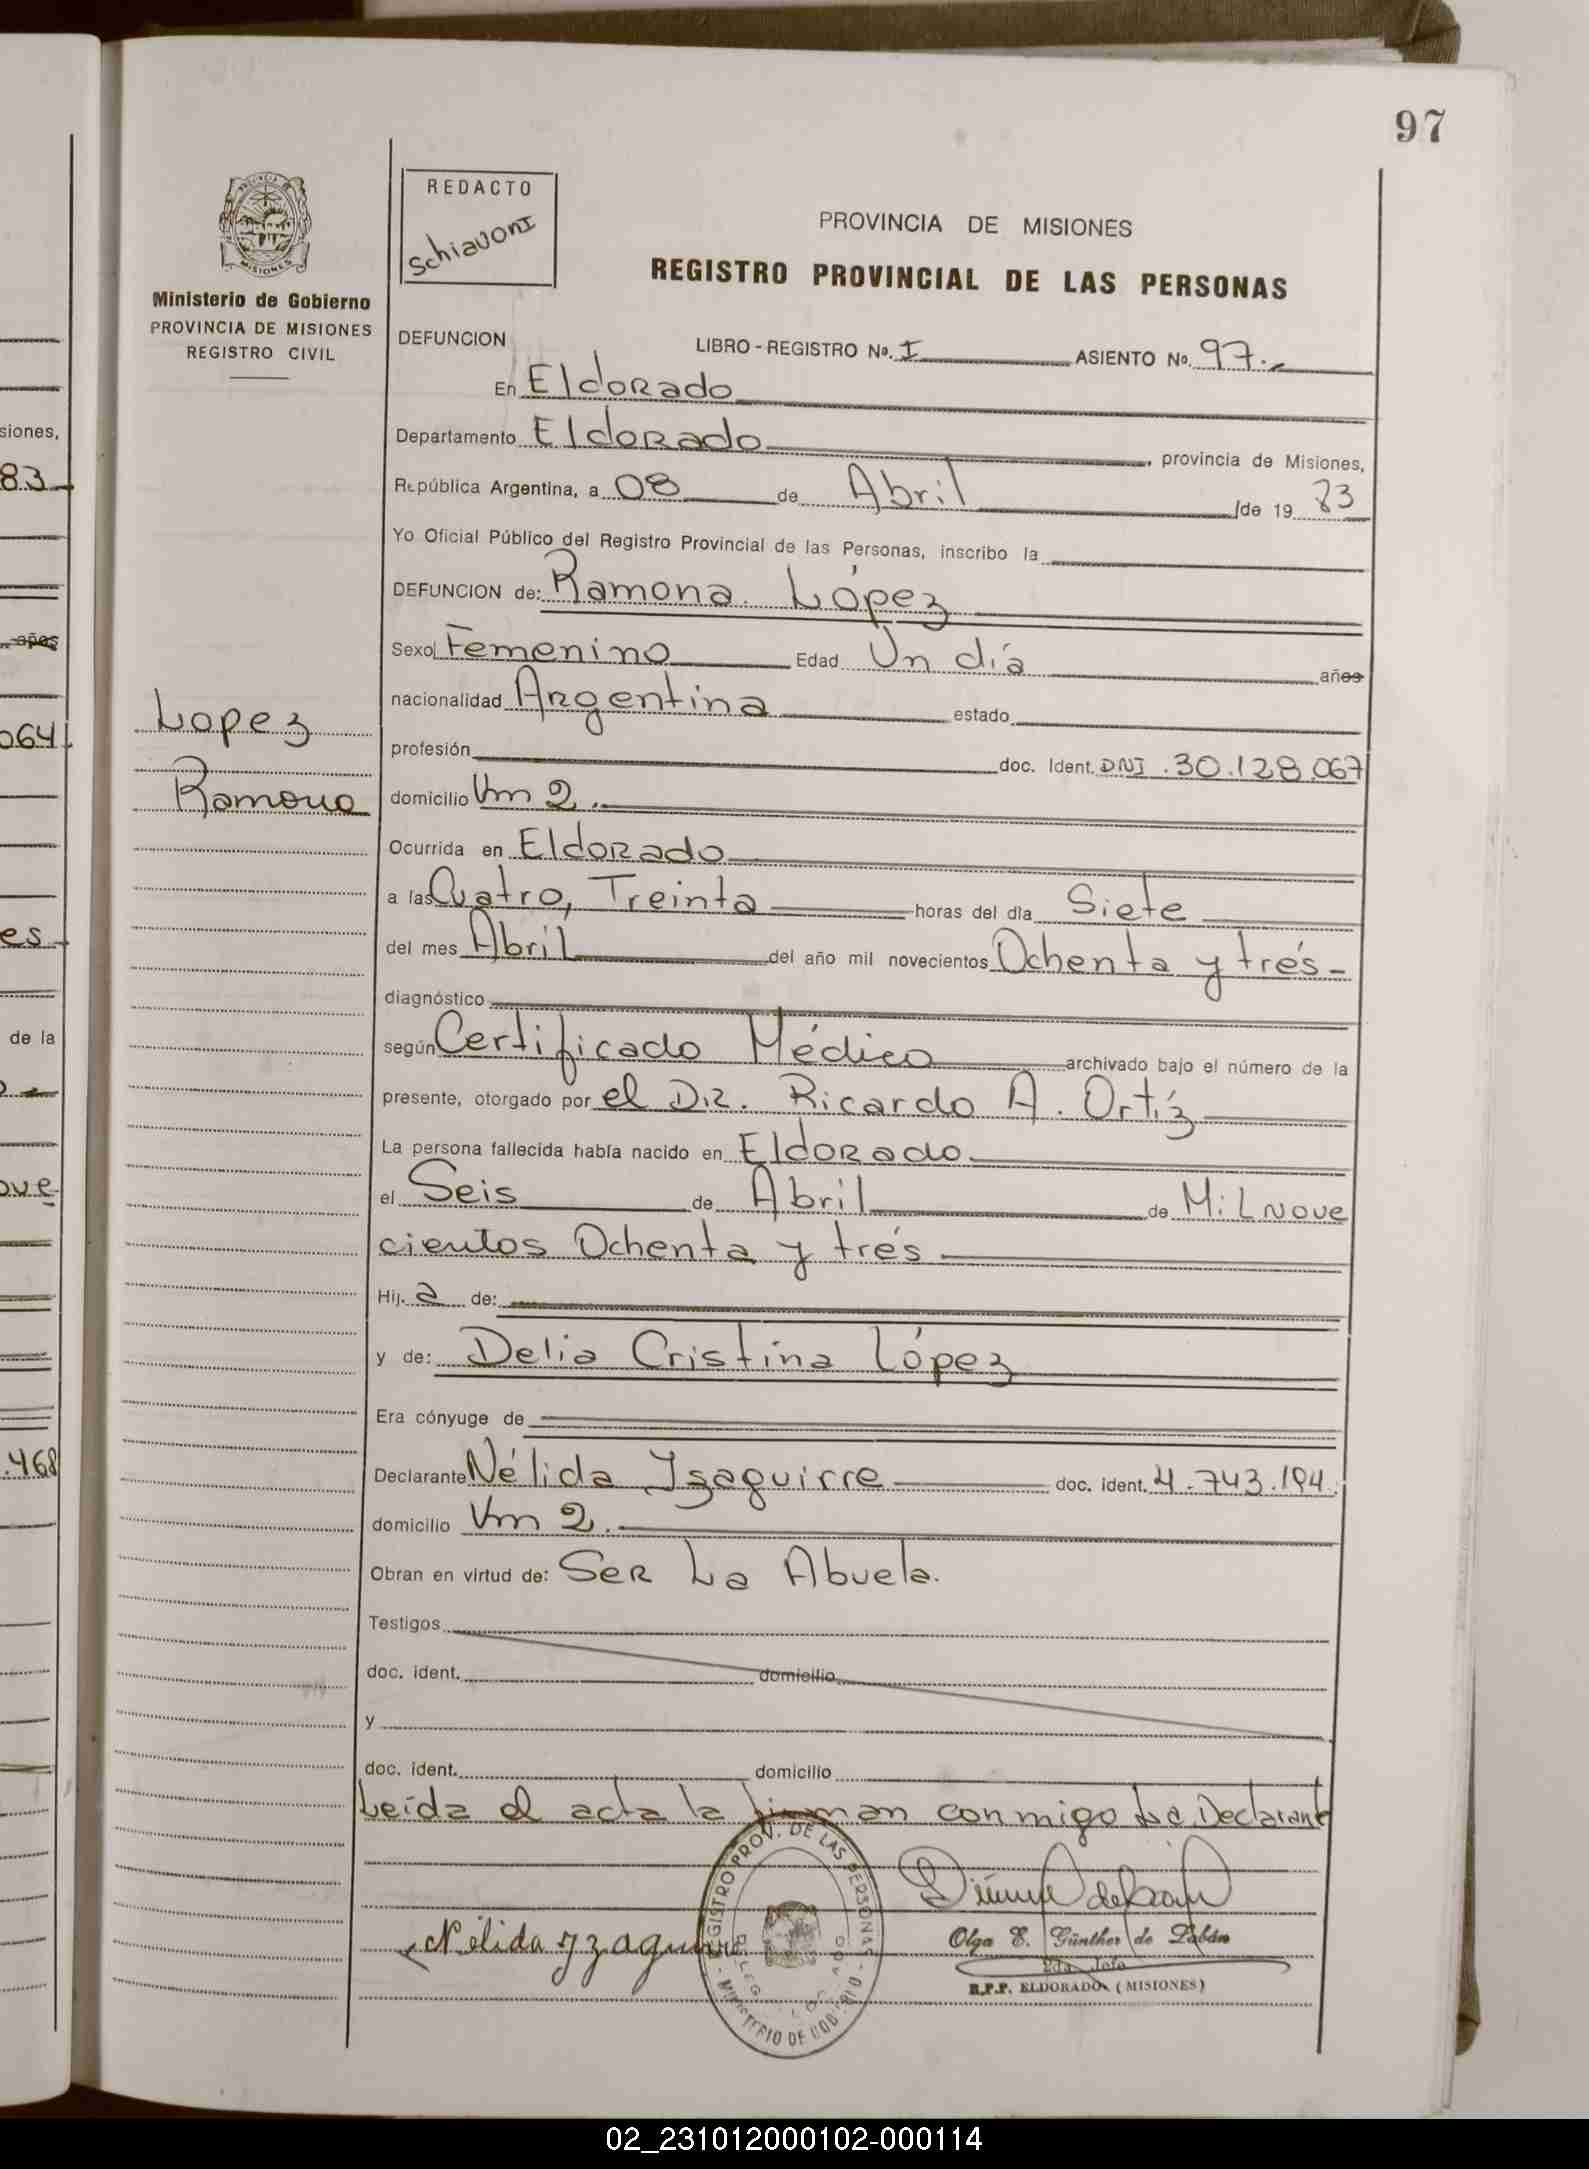 97
REDACTO
Schiavoni
MISIONES
Ministerio de Gobierno
PROVINCIA DE MISIONES
REGISTRO CIVIL
PROVINCIA DE MISIONES
REGISTRO PROVINCIAL DE LAS PERSONAS
DEFUNCION LIBRO - REGISTRO No. I ASIENTO No. 97.-
En Eldorado
Departamento Eldorado, provincia de Misiones,
República Argentina, a 08 de Abril de 19 83
Yo Oficial Público del Registro Provincial de las Personas, inscribo la
DEFUNCION de: Ramona López
Sexo Femenino Edad Un día años
nacionalidad Argentina estado
profesión doc. Ident. DNI .30.128.067
domicilio Km 2.
Ocurrida en Eldorado
a las Cuatro, Treinta horas del día Siete
del mes Abril del año mil novecientos Ochenta y trés-
diagnóstico
según Certificado Médico archivado bajo el número de la
presente, otorgado por el Dr. Ricardo A. Ortíz
La persona fallecida había nacido en Eldorado
el Seis de Abril de Mil Nove
cientos Ochenta y trés
Hij. a de:
y de: Delia Cristina López
Era cónyuge de
Declarante Nélida Yzaguirre doc. ident. 4.743.194.
domicilio Km 2.
Obran en virtud de: Ser La Abuela.
Testigos
doc. ident. domicilio
y
doc. ident. domicilio
Leída el acta la firman conmigo La Declarante
Lopez
Ramona
Nélida Yzaguirre
REGISTRO PROV. DE LAS PERSONAS
MINISTERIO DE GOBIERNO
Olga E. Günther de Labán
2da. Jefe
R.P.P. ELDORADO (MISIONES)
siones,
83
años
064
es
de la
ove
.468
02_231012000102-000114